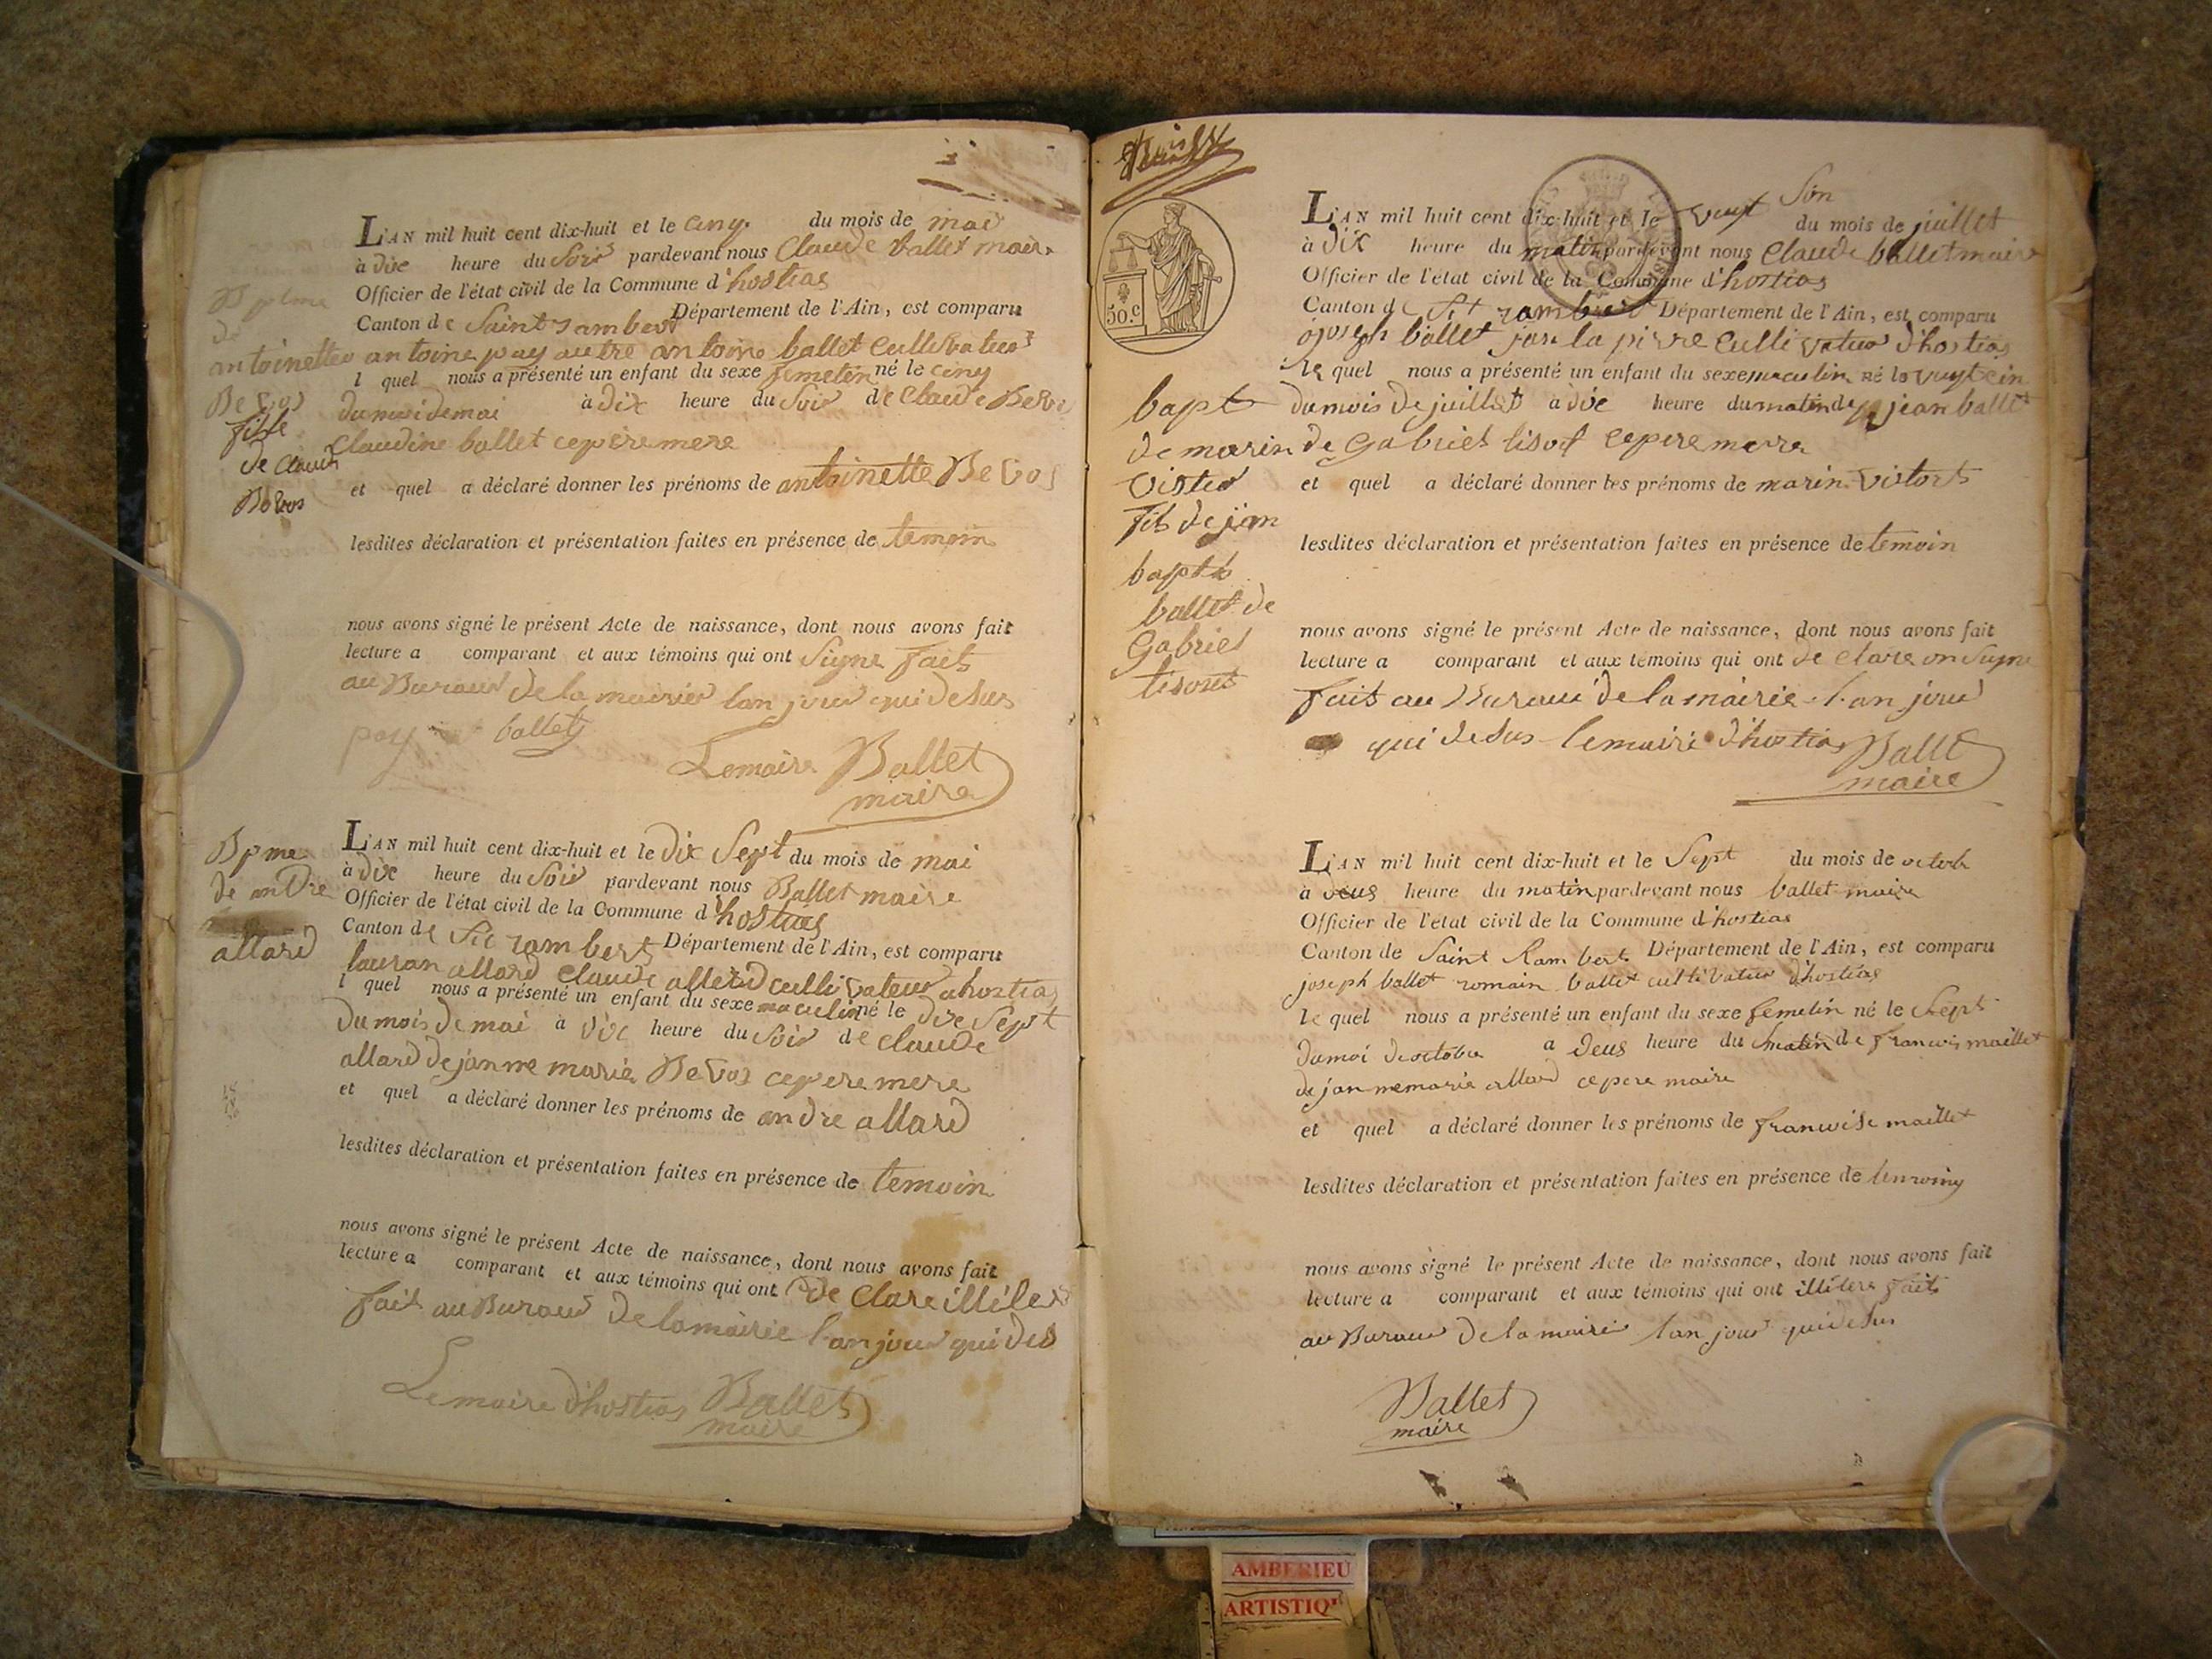 L'AN mil huit cent dix-huit et le cinq du mois de mai
à dix heure du soir pardevant nous Claude ballet maire
Officier de l'état civil de la Commune d'hostias
Canton de Saint rambert Département de l'Ain, est comparu
antoine pay autre antoine ballet cultivateur
l quel nous a présenté un enfant du sexe femelin né le cinq
du moi de mai à dix heure du soir de Claude Devos
Claudine ballet ce pere mere
et quel a déclaré donner les prénoms de antoinette Devos
lesdites déclaration et présentation faites en présence de temoin
nous avons signé le présent Acte de naissance, dont nous avons fait
lecture a comparant et aux témoins qui ont signe fait
au Buraux de la mairie lan jour qui desus
pay ballet
Lemaire Ballet
maire
de
antoinette
Devos
fille
de Claude
Devos
L'AN mil huit cent dix-huit et le dix Sept du mois de mai
à dix heure du soir pardevant nous Ballet maire
Officier de l'état civil de la Commune d'hostias
Canton de St rambert Département de l'Ain, est comparu
lauran allard Claude allerd cullivateur a hostias
l quel nous a présenté un enfant du sexe maculin né le dix Sept
du mois de mai à dix heure du soir de Claude
allard de janne marie Devos ce pere mere
et quel a déclaré donner les prénoms de andre allard
lesdites déclaration et présentation faites en présence de temoin
nous avons signé le présent Acte de naissance, dont nous avons fait
lecture a comparant et aux témoins qui ont de clare illiteré
fait au Buraux de la mairie l'an jour qui des
Lemaire d'hostias Ballet
maire
Bpme
de andre
allard
50.c
L'AN mil huit cent dix-huit et le vingt Sin du mois de juillet
à dix heure du matin pardevant nous Claude ballet maire
Officier de l'état civil de la Commune d'hostias
Canton d St rambert Département de l'Ain, est comparu
joseph ballet jan la pierre cullivateur d'hostias
le quel nous a présenté un enfant du sexe maculin né le vingt cin
du mois de juillet à dix heure du matin de jean ballet
de Gabriel tisot ce pere merre
et quel a déclaré donner les prénoms de marin Victort
lesdites déclaration et présentation faites en présence de temoin
nous avons signé le présent Acte de naissance, dont nous avons fait
lecture a comparant et aux témoins qui ont de clare on Signe
fait au Buraux de la mairie l'an jour
qui desus le maire d'hostias Ballet
maire
bapt
de marin
Victor
fils de jan
baptt
ballet de
Gabriel
tisout
L'AN mil huit cent dix-huit et le Sept du mois de octob
à deus heure du matin pardevant nous ballet maire
Officier de l'état civil de la Commune d'hostias
Canton de Saint Rambert Département de l'Ain, est comparu
joseph ballet romain ballet cultivateur d'hostias
le quel nous a présenté un enfant du sexe femelin né le Sept
du moi de octobre a deus heure du matin de francois maillet
de jan me marie allard ce pere maire
et quel a déclaré donner les prénoms de francoise maillet
lesdites déclaration et présentation faites en présence de temoing
nous avons signé le présent Acte de naissance, dont nous avons fait
lecture a comparant et aux témoins qui ont illitere fait
au Buraux de la mairi lan jour qui desus
Ballet
maire
AMBERIEU
ARTISTIQ